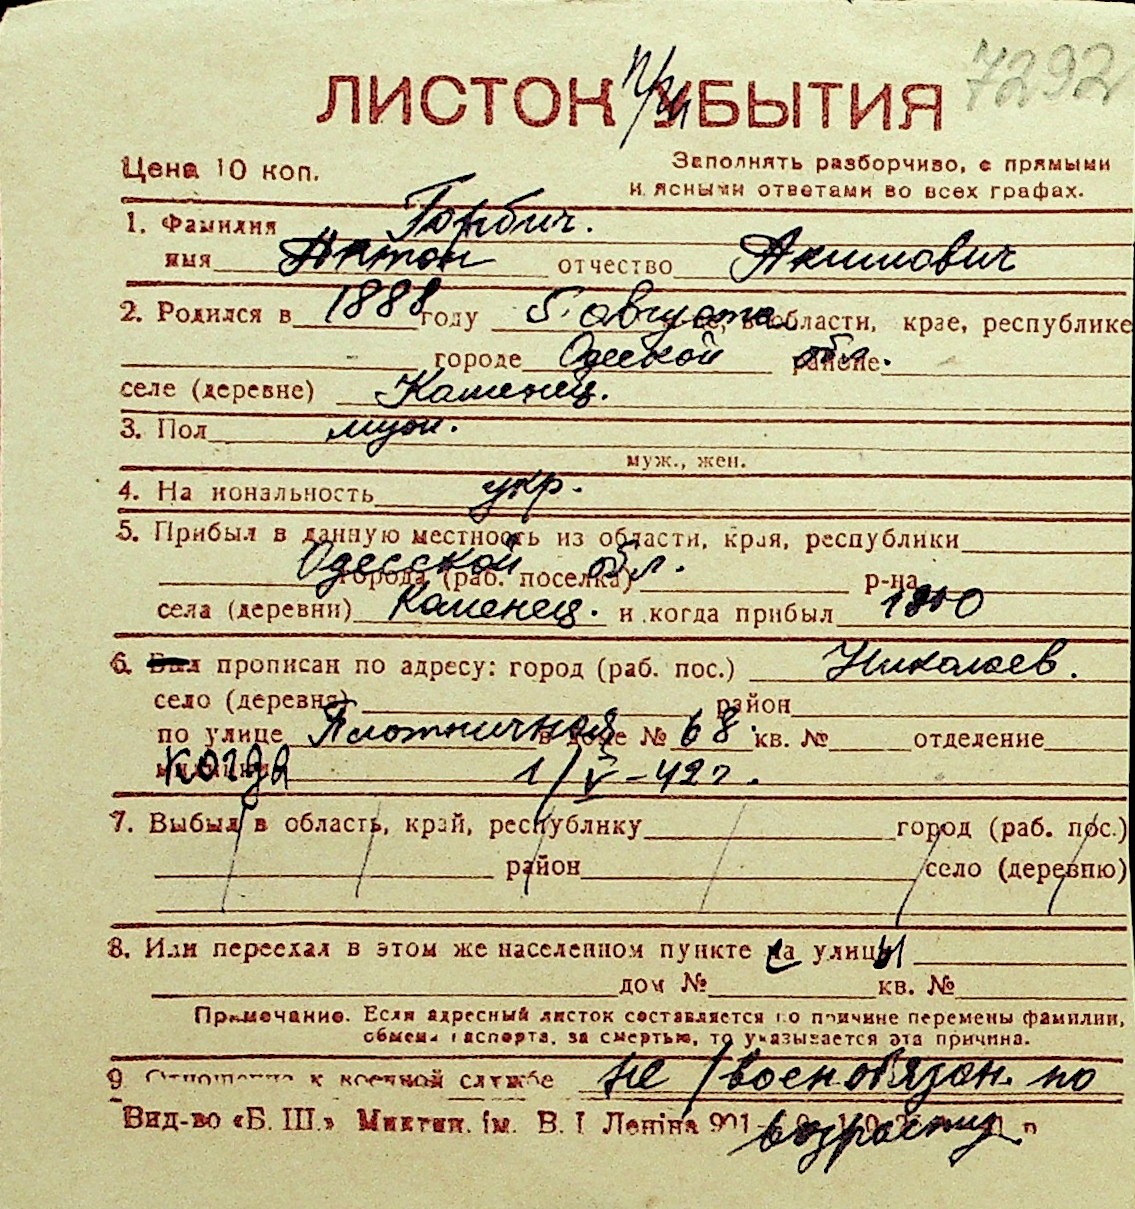 7292
ЛИСТОК УБЫТИЯ
Цена 10 коп.
Заполнять разборчиво, с прямыми
и ясными ответами во всех графах.
1. Фамилия Горбич.
имя Антон отчество Акимович
2. Родился в 1888 году 5 августа в области, крае, республике
городе Одесской обл. районе
селе (деревне) Каменец.
3. Пол муж.
муж., жен.
4. На иональность укр.
5. Прибыл в данную местность из области, края, республики
Одесской обл.
города (раб. поселка) р-на
села (деревни) Каменец. и когда прибыл 1900
6. Был прописан по адресу: город (раб. пос.) Николаев.
село (деревня) район
по улице Плотничная в доме № 68. кв. № отделение
милиции когда 1/V-42г.
7. Выбыл в область, край, республику город (раб. пос.)
район село (деревню)
8. Или переехал в этом же населенном пункте с улицы
дом № кв. №
Примечание. Если адресный листок составляется по причине перемены фамилии,
обмена паспорта, за смертью, то указывается эта причина.
9 Отношение к военной службе не военобязан. по
возрасту
Вид-во «Б. Ш.» Миктип. ім. В. І Леніна